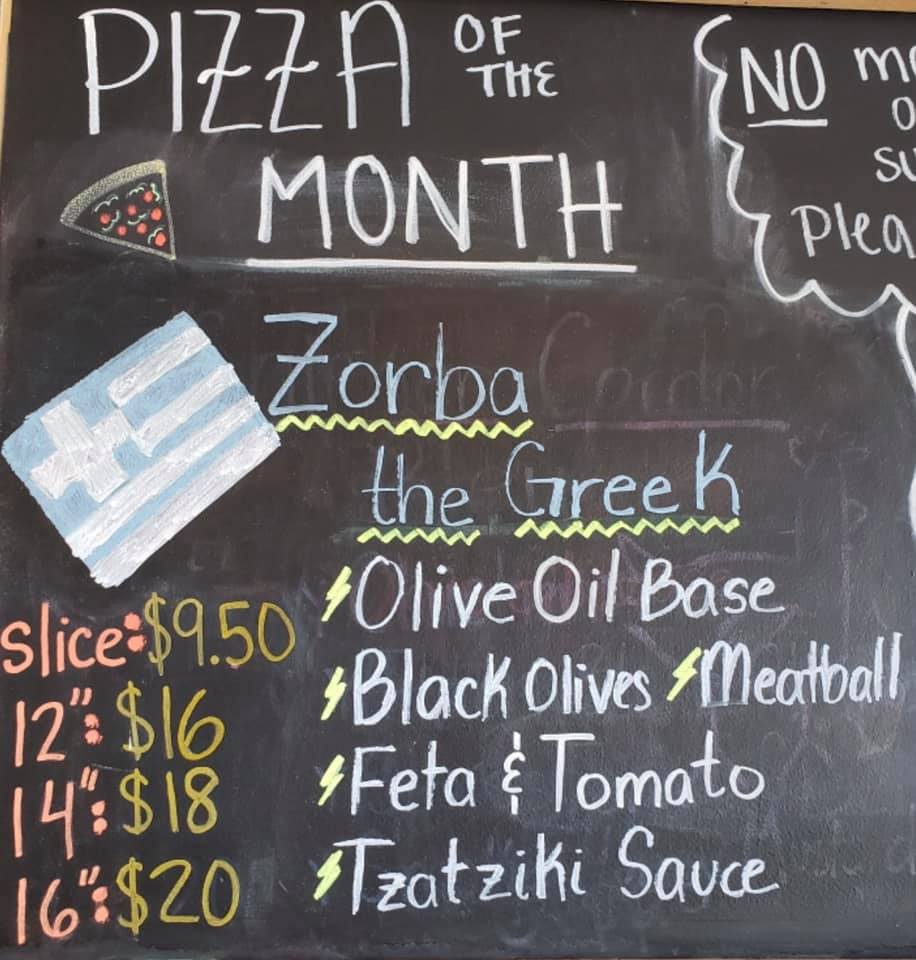 PIZZA OF THE
MONTH
NO
Zorba
the Greek
Olive Oil Base
Black Olives Meatball
Feta & Tomato
Tzatziki Sauce
slice: $9.50
12": $16
14": $18
16": $20